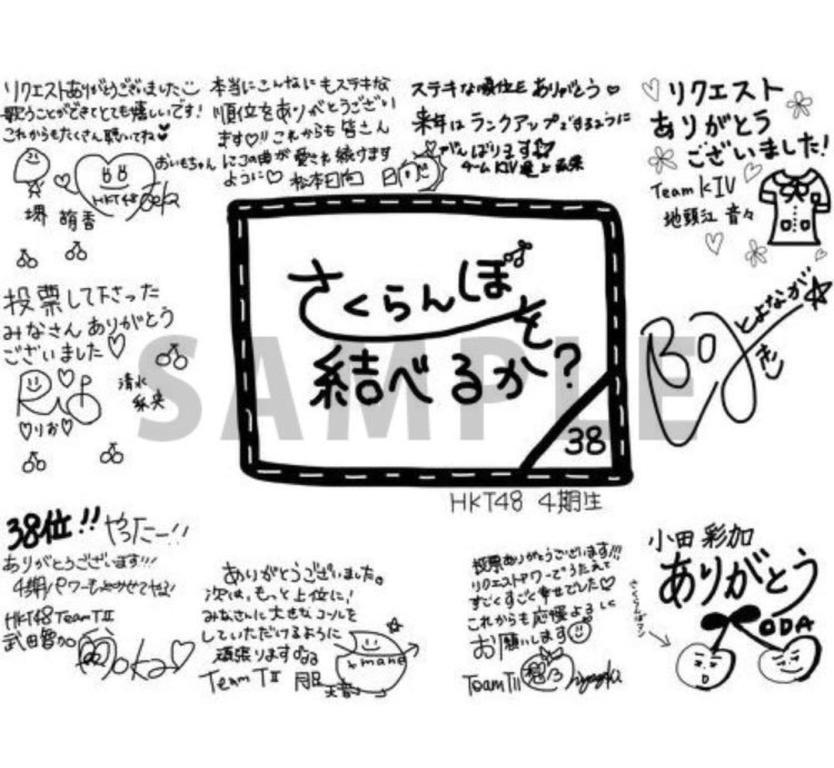 リクエストありがとうございました
歌うことができてとても嬉しいです!
これからもたくさん聴いてね♥
おいもちゃん
HKT48
堺 萌香
本当にこんなにもステキな
順位をありがとうござい
ます♡!!これからも皆さん
にこの曲が愛され続けます
ように♡ 松本日向
ステキな順位をありがとう♡
来年はランクアップできるように
がんばります
チームKIV
リクエスト
ありがとう
ございました!
Team KIV
地頭江 音々
さくらんぼを
結べるか?
38
SAMPLE
HKT48 4期生
投票して下さった
みなさんありがとう
ございました♡
清水
梨央
♡りお♡
とよなが
あき
38位!!やったー!!
ありがとうございます!!!
HKT48 Team TII
武田智加
ありがとうございました。
次は、もっと上位に!
みなさんに大きなコールを
していただけるように
頑張ります
Team TII
投票ありがとうございます!!!
リクエストアワーでうたえて
すごくすごく幸せでした♡
これからも応援よろしく
お願いします
Team TII
小田 彩加
ありがとう
ODA
さくらんぼマン